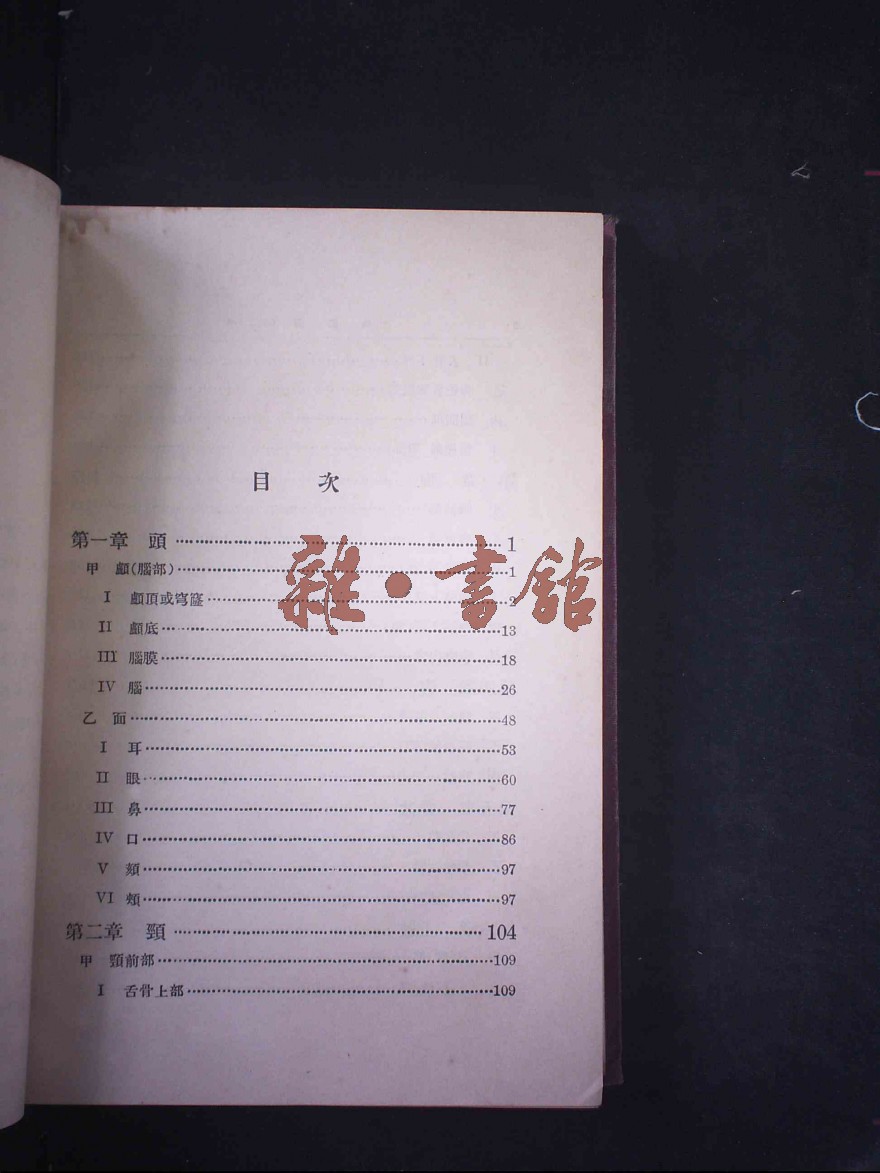 目 次
第一章 頭 1
甲 顱(腦部) 1
I 顱頂或穹窿 2
II 顱底 13
III 腦膜 18
IV 腦 26
乙 面 48
I 耳 53
II 眼 60
III 鼻 77
IV 口 86
V 頦 97
VI 頰 97
第二章 頸 104
甲 頸前部 109
I 舌骨上部 109
雜·書館